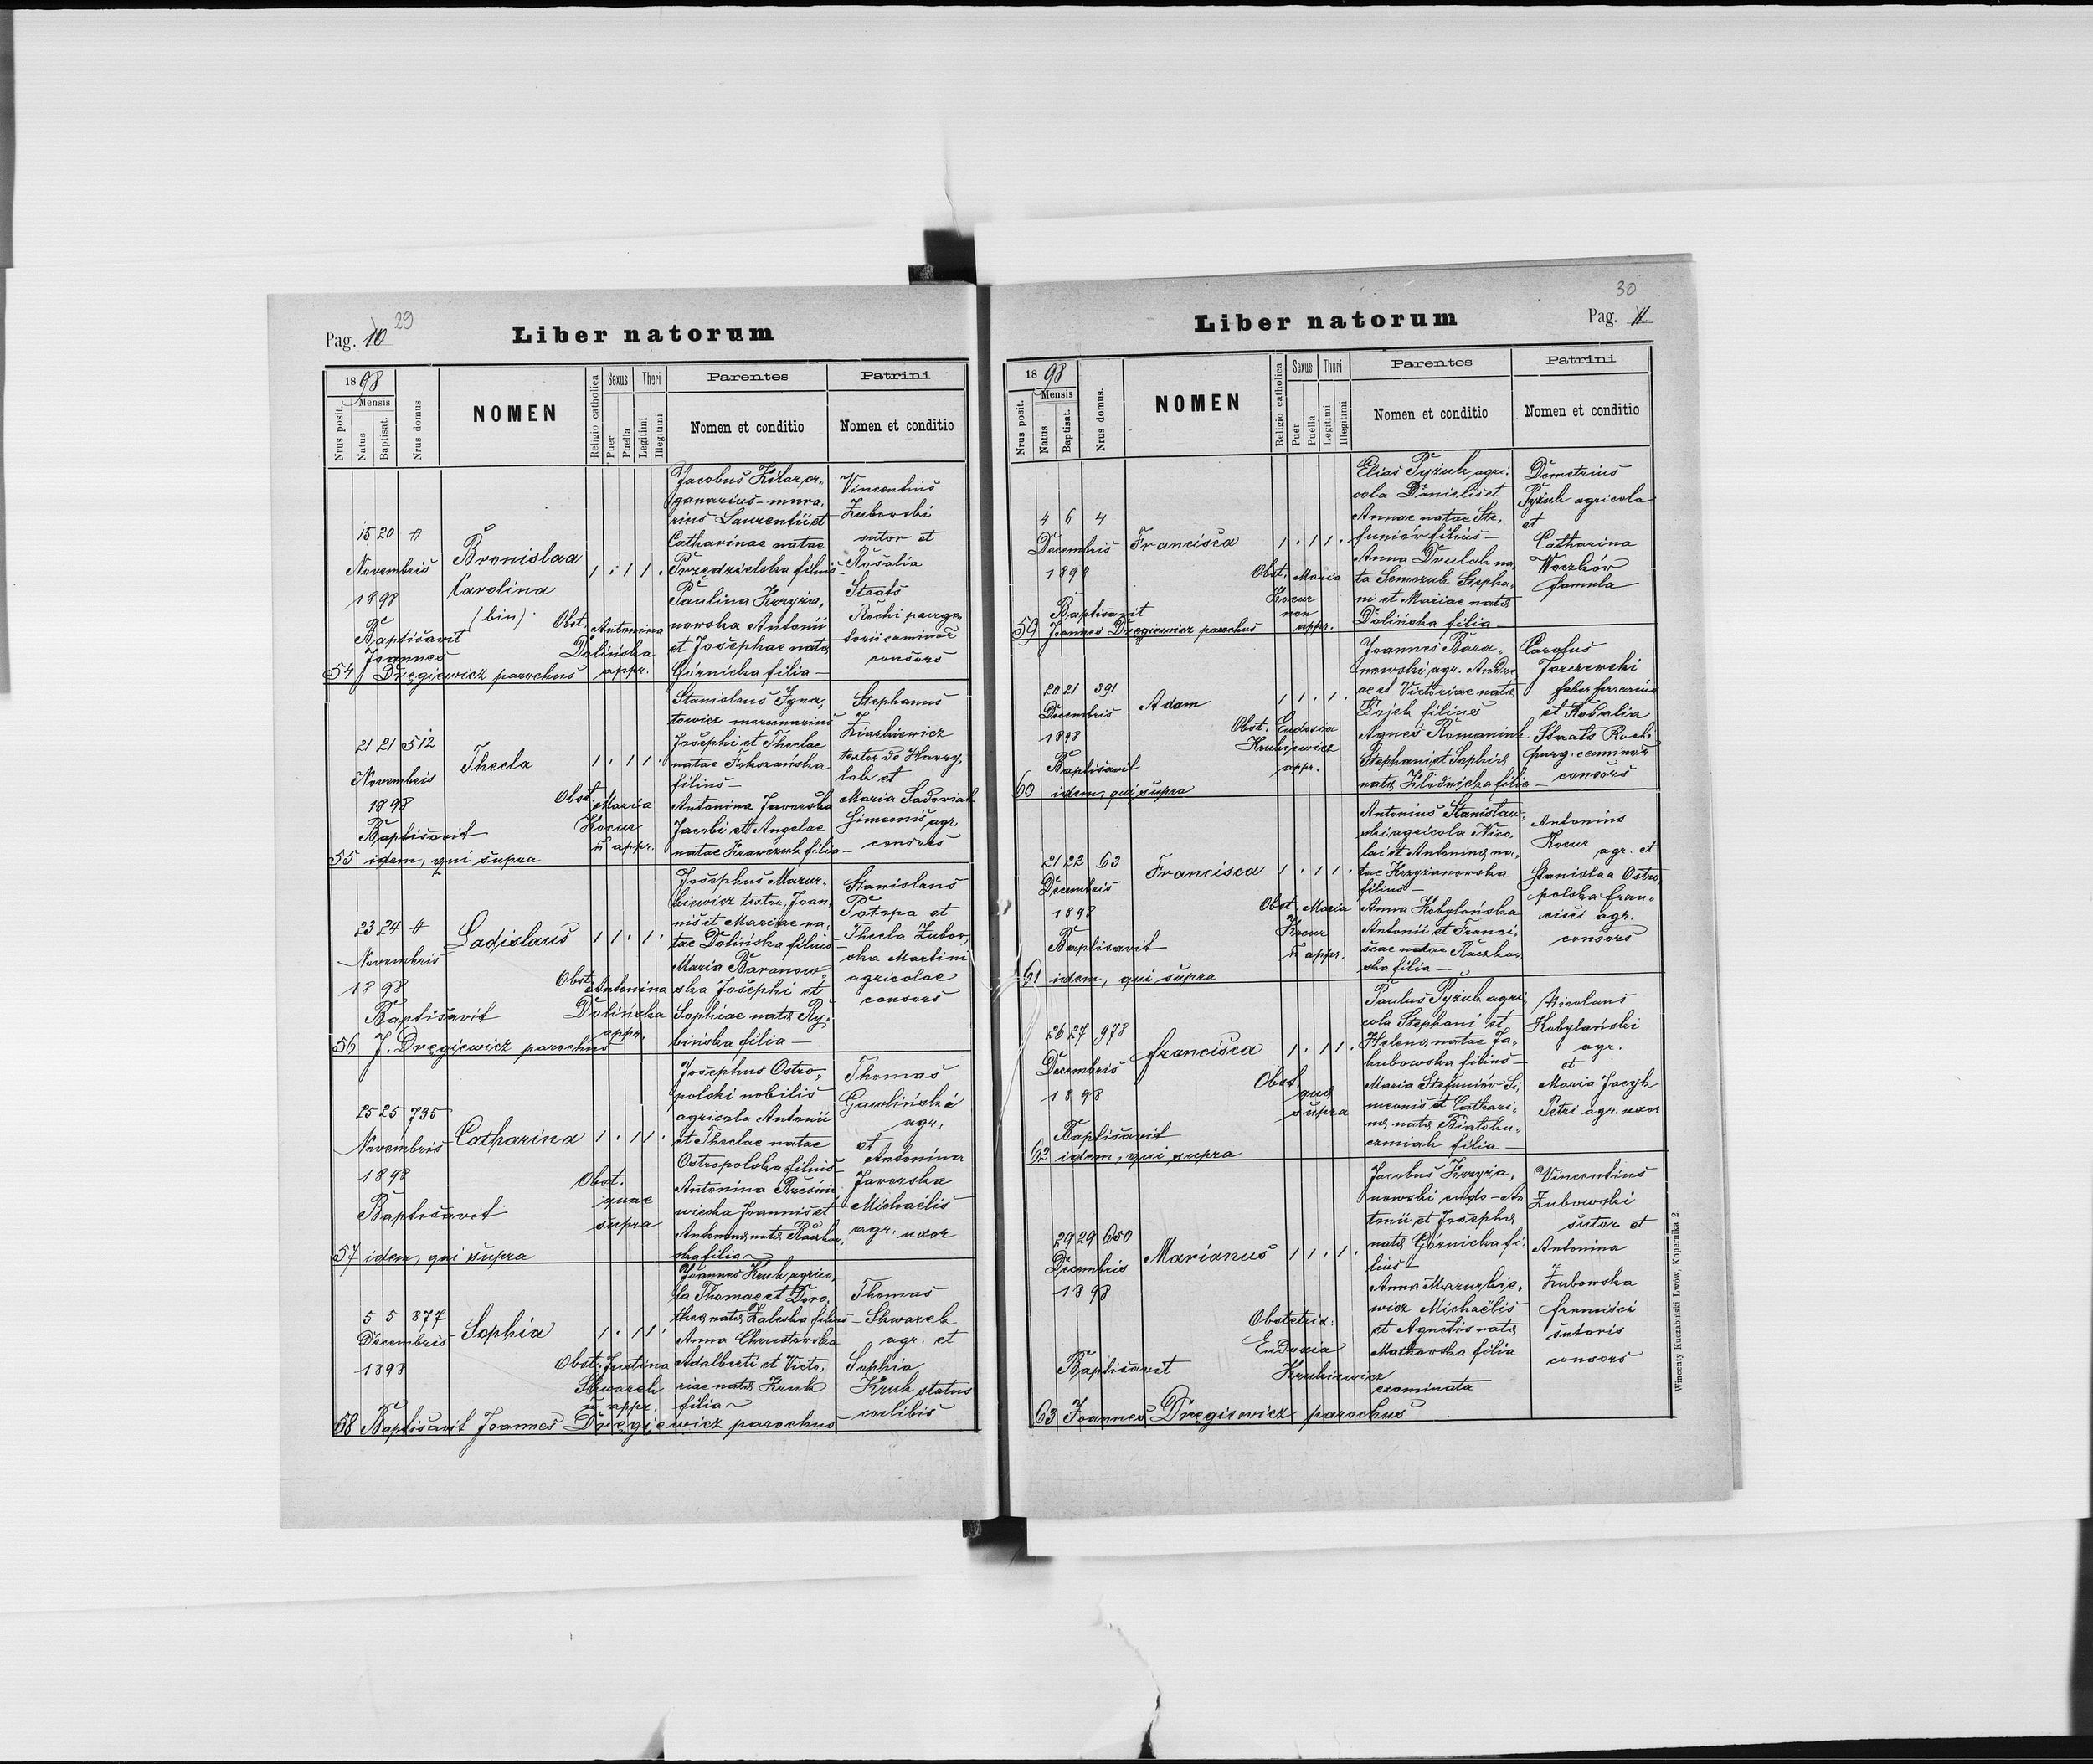 Pag. 10 29
Liber natorum
1898
Mensis
Nrus posit.
Natus
Baptisat.
Nrus domus
NOMEN
Religio catholica
Sexus
Puer
Puella
Thori
Legitimi
Illegitimi
Parentes
Nomen et conditio
Patrini
Nomen et conditio
15 20
Novembris
1898
Baptisavit
Joannes
54 Dręgiewicz parochus
Bronislaa
Carolina
(bin)
1 . 1 1 .
Obst. Antonina
Dolińska
appr.
Jacobus Kilar, or-
ganarius - mura-
rius Laurentii et
Catharinae natae
Przedzielska filius -
Paulina Krzyża-
nowska Antonii
et Josephae natae
Górnicka filia -
Vincentius
Zubowski
sutor et
Rosalia
Staats
Rochi purga-
torii caminor
consors
21 21 512
Novembris
1898
Baptisavit
55 idem, qui supra
Thecla
1 . 1 1 .
Obst. Maria
Kocur
ñ appr.
Stanislaus Igna-
towicz mercenarius
Josephi et Theclae
natae Tokorańska
filius -
Antonina Jaworska
Jacobi et Angelae
natae Krawczuk filia -
Stephanus
Ziarkiewicz
textor de Hawry-
lak et
Maria Sadowiak
Simeonis agr.
consors
23 24
Novembris
1898
Baptisavit
56 J. Dręgiewicz parochus
Ladislaus
1 1 . 1 .
Obst. Antonina
Dolińska
appr.
Josephus Mazur-
kiewicz textor, Joan-
nis et Mariae na-
tae Dolińska filius -
Maria Baranow-
ska Josephi et
Sophiae natae Ry-
bińska filia -
Stanislaus
Potopa et
Thecla Zubow-
ska Martini
agricolae
consors
25 25 735
Novembris
1898
Baptisavit
57 idem, qui supra
Catharina
1 . 1 1 .
Obst.
quae
supra
Josephus Ostro-
polski nobilis
agricola Antonii
et Theclae natae
Ostropolska filius -
Antonina Rześnio-
wiecka Joannis et
Antoninae natae Raczkow-
ska filia
Thomas
Gawliński
agr.
et
Antonina
Jaworska
Michaelis
agr. uxor
5 5 877
Decembris
1898
58 Baptisavit Joannes Dręgiewicz parochus
Sophia
1 . 1 1 .
Obst. Justina
Skwarek
ñ appr.
Joannes Kruk agrico-
la Thomae et Doro-
theae natae Zaleska filius -
Anna Chrustowska
Adalberti et Victo-
riae natae Kruk
filia
Thomas
Skwarek
agr. et
Sophia
Kruk status
coelibis
30
Pag. 11
Liber natorum
1898
Mensis
Nrus posit.
Natus
Baptisat.
Nrus domus.
NOMEN
Religio catholica
Sexus
Puer
Puella
Thori
Legitimi
Illegitimi
Parentes
Nomen et conditio
Patrini
Nomen et conditio
4 6 4
Decembris
1898
Baptisavit
59 Joannes Dręgiewicz parochus
Francisca
1 . 1 1 .
Obst. Maria
Kocur
non
appr.
Elias Pyżuk agri-
cola Danielis et
Annae natae Ste-
funiów filius -
Anna Drulak na-
ta Semczuk Stepha-
ni et Mariae natae
Dolińska filia -
Demetrius
Pyżuk agricola
et
Catharina
Woczków
famula
20 21 391
Decembris
1898
Baptisavit
60 idem, qui supra
Adam
1 1 . 1 .
Obst. Eudoxia
Krukiewicz
appr.
Joannes Bara-
nowski agr. Andre-
ae et Victoriae natae
Gajek filius
Agnes Romaniuk
Stephani et Sophiae
natae Klodnicka filia -
Carolus
Jarczewski
faber ferrarius
et Rosalia
Staats Rochi
purg. caminor
consors
21 22 63
Decembris
1898
Baptisavit
61 idem, qui supra
Francisca
1 . 1 1 .
Obst. Maria
Kocur
ñ appr.
Antonius Stanislaw-
ski agricola Nico-
lai et Antoninae na-
tae Krzyżanowska
filius -
Anna Kobylańska
Antonii et Franci-
scae natae Raczkow-
ska filia -
Antonius
Kocur
agr. et
Stanislaa Ostro-
polska Fran-
cisci agr.
consors
26 27 978
Decembris
1898
Baptisavit
62 idem, qui supra
Francisca
1 . 1 1 .
Obst.
quae
supra
Paulus Pyżuk agri-
cola Stephani et
Helenae natae Ja-
kubowska filius -
Maria Stefuniów Si-
meonis et Cathari-
nae natae Białoku-
czmiak filia -
Nicolaus
Kobylański
agr.
et
Maria Jacyk
Petri agr. uxor
29 29 650
Decembris
1898
Baptisavit
63 Joannes Dręgiewicz parochus
Marianus
1 1 . 1 .
Obstetrix:
Eudoxia
Krukiewicz
examinata
Jacobus Krzyża-
nowski cudo - An-
tonii et Josephae
natae Górnicka fi-
lius -
Anna Mazurkie-
wicz Michaëlis
et Agnetis natae
Matkowska filia
Vincentius
Zubowski
sutor et
Antonina
Zubowska
Francisci
sutoris
consors
Wincenty Kuczabiński Lwów, Kopernika 2.